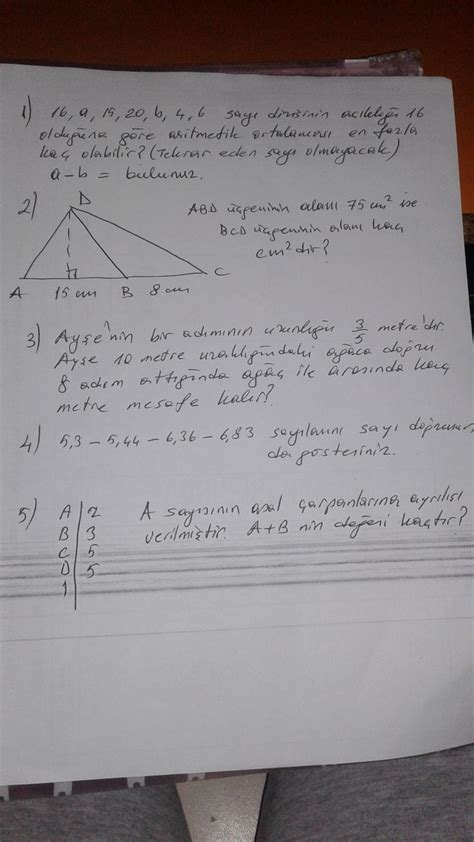 1) 16, a, 15, 20, b, 4, 6 sayı dizisinin açıklığı 16
olduğuna göre aritmetik ortalaması en fazla
kaç olabilir? (Tekrar eden sayı olmayacak)
a-b = bulunuz.
2) D
ABD üçgeninin alanı 75 cm² ise
BCD üçgeninin alanı kaç
cm² dır?
A 15 cm B 8 cm C
3) Ayşe'nin bir adımının uzunluğu 3/5 metre'dir.
Ayşe 10 metre uzaklığındaki ağaca doğru
8 adım attığında ağaç ile arasında kaç
metre mesafe kalır?
4) 5,3 - 5,44 - 6,36 - 6,83 sayılarını sayı doğrusun
da gösteriniz.
5) A 2 A sayısının asal çarpanlarına ayrılışı
B 3 verilmiştir. A+B nin değeri kaçtır?
C 5
D 5
1